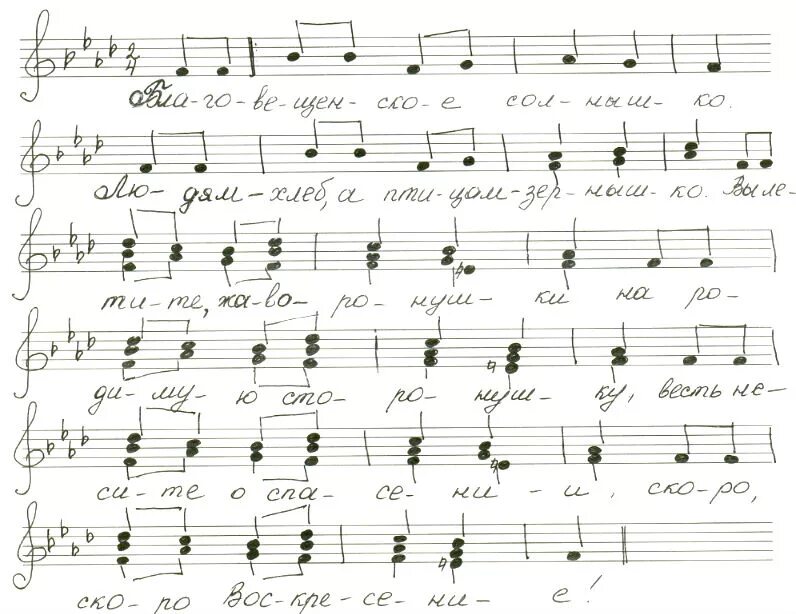 2 4
Бла-го-ве-щен-ско-е сол-ныш-ко.
Лю-дям-хлеб, а пти-цам-зер-ныш-ко. Выле-
ти-те, жа-во-ро-нуш-ки на ро-
ди-му-ю сто-ро-нуш-ку, весть не-
си-те о спа-се-ни-и, ско-ро,
ско-ро Вос-кре-се-ни-е!